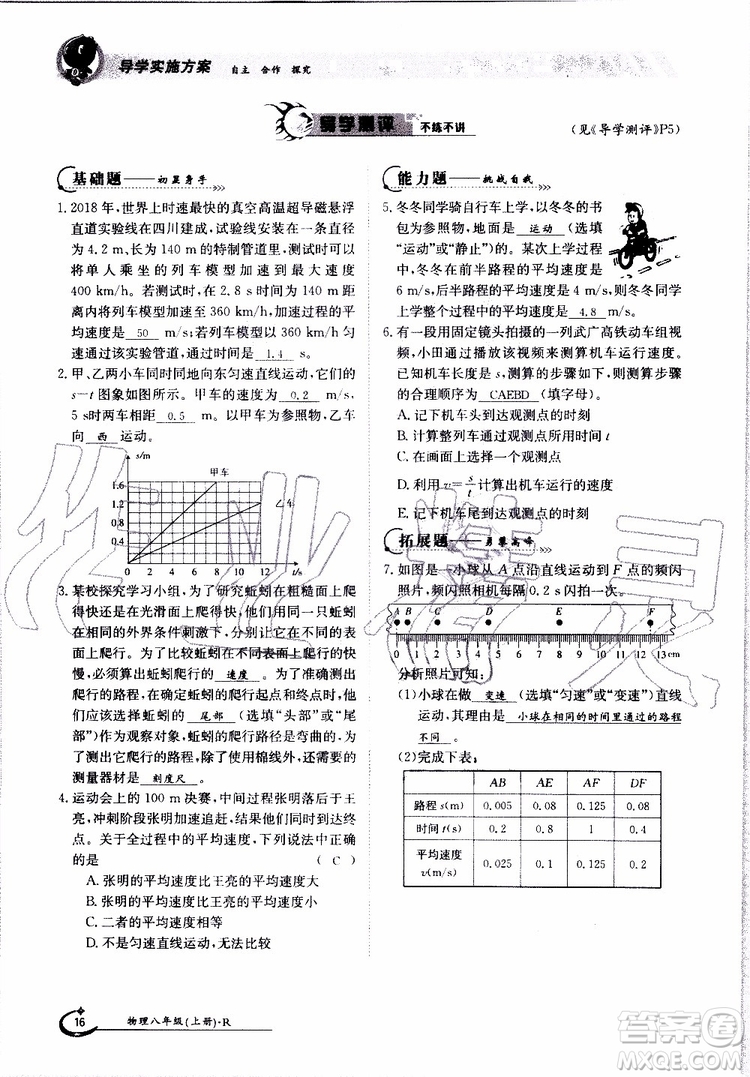 导学实施方案 自主 合作 探究
导学测评 不练不讲
(见《导学测评》P5)
基础题——初显身手
1. 2018 年,世界上时速最快的真空高温超导磁悬浮
直道实验线在四川建成,试验线安装在一条直径
为 4.2 m、长为 140 m 的特制管道里,测试时可以
将单人乘坐的列车模型加速到最大速度
400 km/h。若测试时,在 2.8 s 时间里、140 m 距离
内将列车模型加速至 360 km/h,加速过程的平
均速度是 50 m/s;若列车模型以 360 km/h 匀
速通过该实验管道,运行时间为 1.4 s。
2. 甲、乙两小车同时同地向东匀速直线运动,它们的
s—t 图象如图所示。甲车的速度为 0.2 m/s,
5 s时两车相距 0.5 m。以甲车为参照物,乙车
向 西 运动。
s/m
甲车
1.6
1.2
乙车
0.8
0.4
0 2 4 6 8 10 12 t/s
3. 某校探究学习小组,为了研究蚯蚓在粗糙面上爬
得快还是在光滑面上爬得快,他们需要在相同
的外界条件刺激下,分别让蚯蚓在粗糙程度不同
的表面上爬行。为了比较蚯蚓在不同表面上爬行的快
慢,必须算出蚯蚓爬行的 速度 ,还应测出
爬行的路程,在测量蚯蚓爬行的路程时,他
们应选择蚯蚓的 尾部 (选填“头部”或“尾
部”)作为观察对象,蚯蚓的爬行路线是弯曲的,为
了测出它爬行的路程,除了使用棉线外,还需要的
测量器材是 刻度尺 。
4. 运动会上的 100 m 决赛,中间过程张明落后于王
亮,冲刺阶段张明加速追赶,结果他们同时到达终
点。关于全过程中的平均速度,下列说法中正确
的是 ( C )
A. 张明的平均速度比王亮的平均速度大
B. 张明的平均速度比王亮的平均速度小
C. 二者的平均速度相等
D. 不是匀速直线运动,无法比较
能力题——挑战自我
5. 冬冬同学骑自行车上学,以冬冬的书
包为参照物,地面是 运动 (选填
“运动”或“静止”)的。某次上学过程
中,冬冬在前半路程的平均速度是
6 m/s,后半路程的平均速度是 4 m/s,则冬冬同学
上学整个过程的平均速度为 4.8 m/s。
6. 有一段用固定镜头拍摄的一列武广高铁动车组视
频,小田通过播放该视频来测算机车运行速度。
已知机车长度,测算的步骤如下,则下面测算步骤
的合理顺序为 CAEBD (填字母)。
A. 记下机车头到达观测点的时刻
B. 计算整列车通过观测点所用时间
C. 在画面上选择一个观测点
D. 利用 v=s/t 计算出机车运行的速度
E. 记下机车尾到达观测点的时刻
拓展题——勇攀高峰
7. 如图是一小球从 A 点沿直线运动到 F 点的频闪
照片,频闪照相机每隔 0.2 s 闪拍一次。
A B C D E F
0 1 2 3 4 5 6 7 8 9 10 11 12 13 cm
分析照片可知:
(1)小球在做 变速 (选填“匀速”或“变速”)直线
运动,运动的依据是 小球在相同的时间里通过的路程
不同 。
(2)完成下表:
AB AE AF DF
路程 s(m) 0.005 0.08 0.125 0.08
时间 t(s) 0.2 0.8 1 0.4
平均速度
v(m/s) 0.025 0.1 0.125 0.2
16 物理八年级(上册)·R
答案圈
MXQE.COM